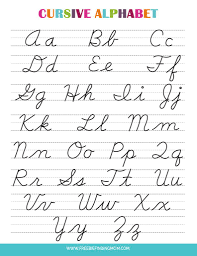 CURSIVE ALPHABET
Aa Bb Cc
Dd Ee Ff
Gg Hh Ii Jj
Kk Ll Mm
Nn Oo Pp Qq
Rr Ss Tt Uu
Vv Ww Xx
Yy Zz